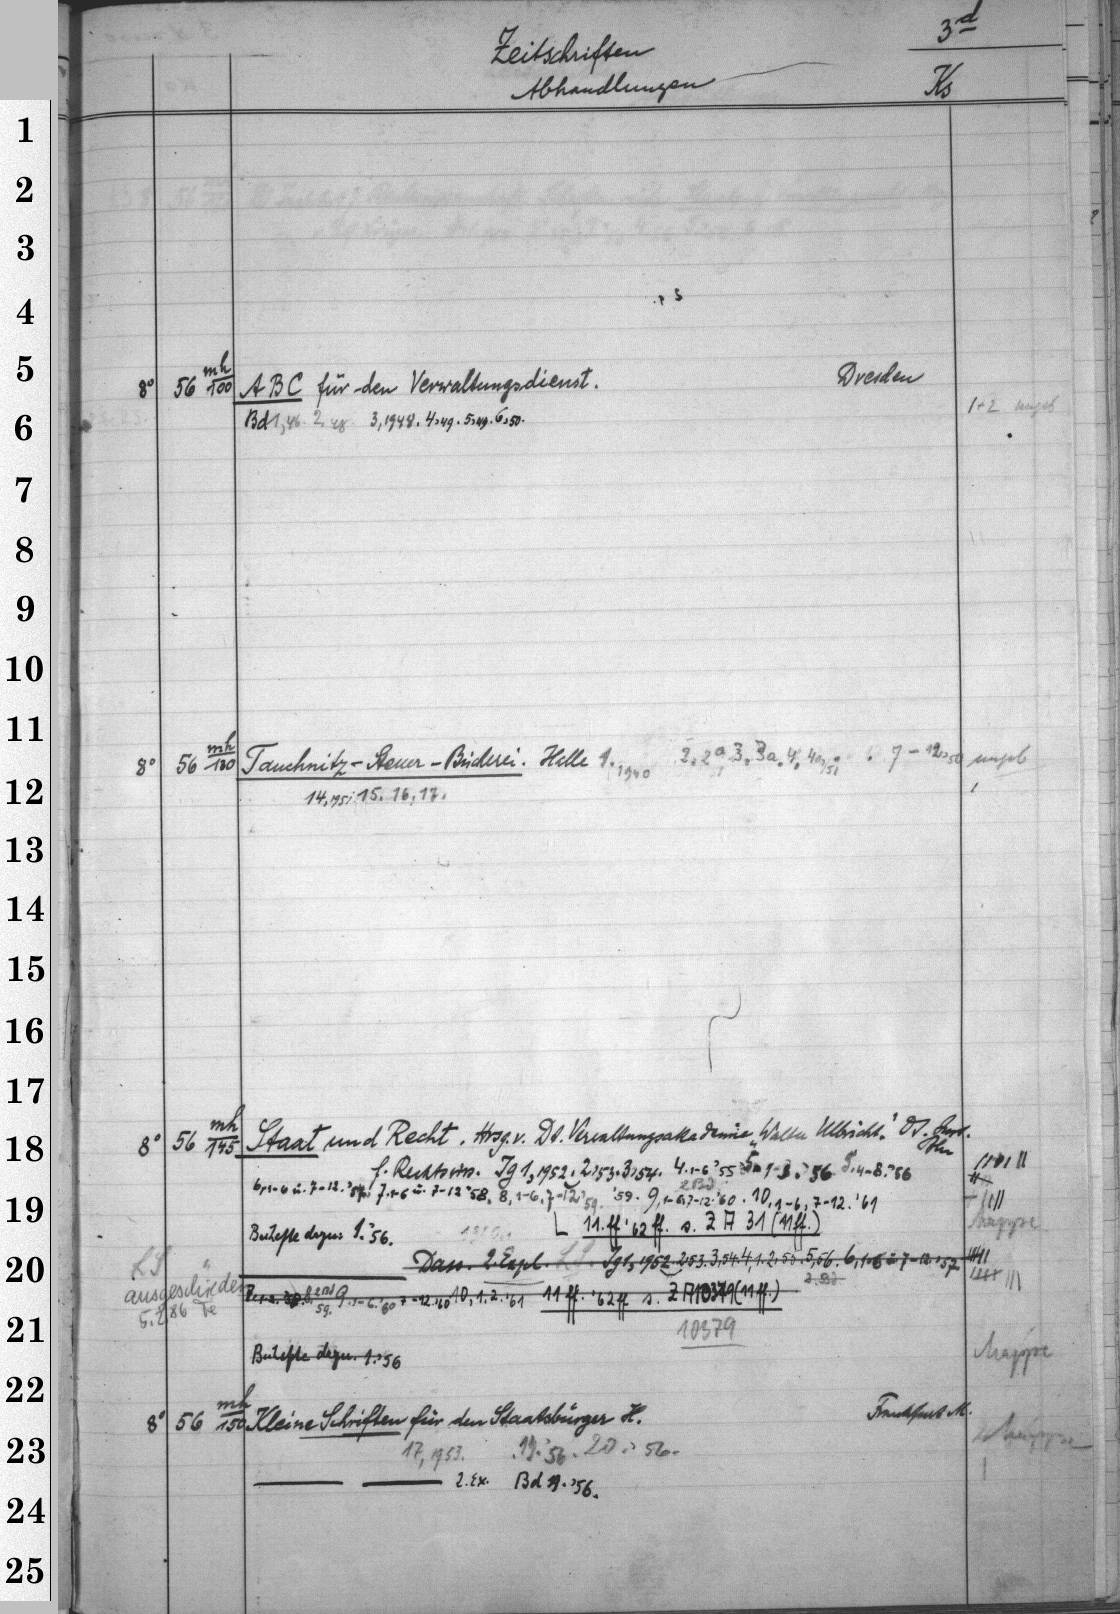 Zeitschriften 3d
Abhandlungen Ks
1
2
3
4
5
8° 56 mh/100 ABC für den Verwaltungsdienst. Dresden
1+2 ungeb
6
Bd 1,46. 2,48 3,1948. 4,49. 5,49. 6,50.
7
8
9
10
11
8° 56 mh/130 Tauchnitz-Steuer-Bücherei. 1. 1940 2. 2a 3. 3a. 4. 7-12,50 ungeb
12
14,1951 15. 16, 17.
13
14
15
16
17
18
8° 56 mh/145 Staat und Recht. Hrsg. v. Dt. Verwaltungsakademie "Walter Ulbricht". Dt. Inst.
f. Rechtswiss. Jg 1,1952. 2,53. 3,54. 4,1-6 '55 '56 5,4-8.'56
6,1-6 u. 7-12.'57. 7,1-6 u. 7-12 '58, 8,1-6, 7-12, '59. 9,1-6,7-12.'60. 10,1-6, 7-12.'61
19
11.ff '62 ff. s. Z A 31 (11ff.) Mappe
Beihefte dazu: 1.'56.
20
Dass. 2. Expl. LS Jg 1, 1952. 2,53. 3,54. 4,1.2,55. 5,56. 6,1-6 u 7-12.'57
LS ausgeschieden
5.2.86 Te
59. 9. 1-6.'60 7-12.'60 10,1.2.'61 11 ff. '62 ff s. Z A 10379 (11ff.)
21
10379
Beihefte dazu. 1.'56 Mappe
22
8° 56 mh/150 Kleine Schriften für den Staatsbürger H. Frankfurt M.
23
17, 1953. 19.'56. 20.'56. Mappe
2. Ex. Bd 19.'56.
24
25